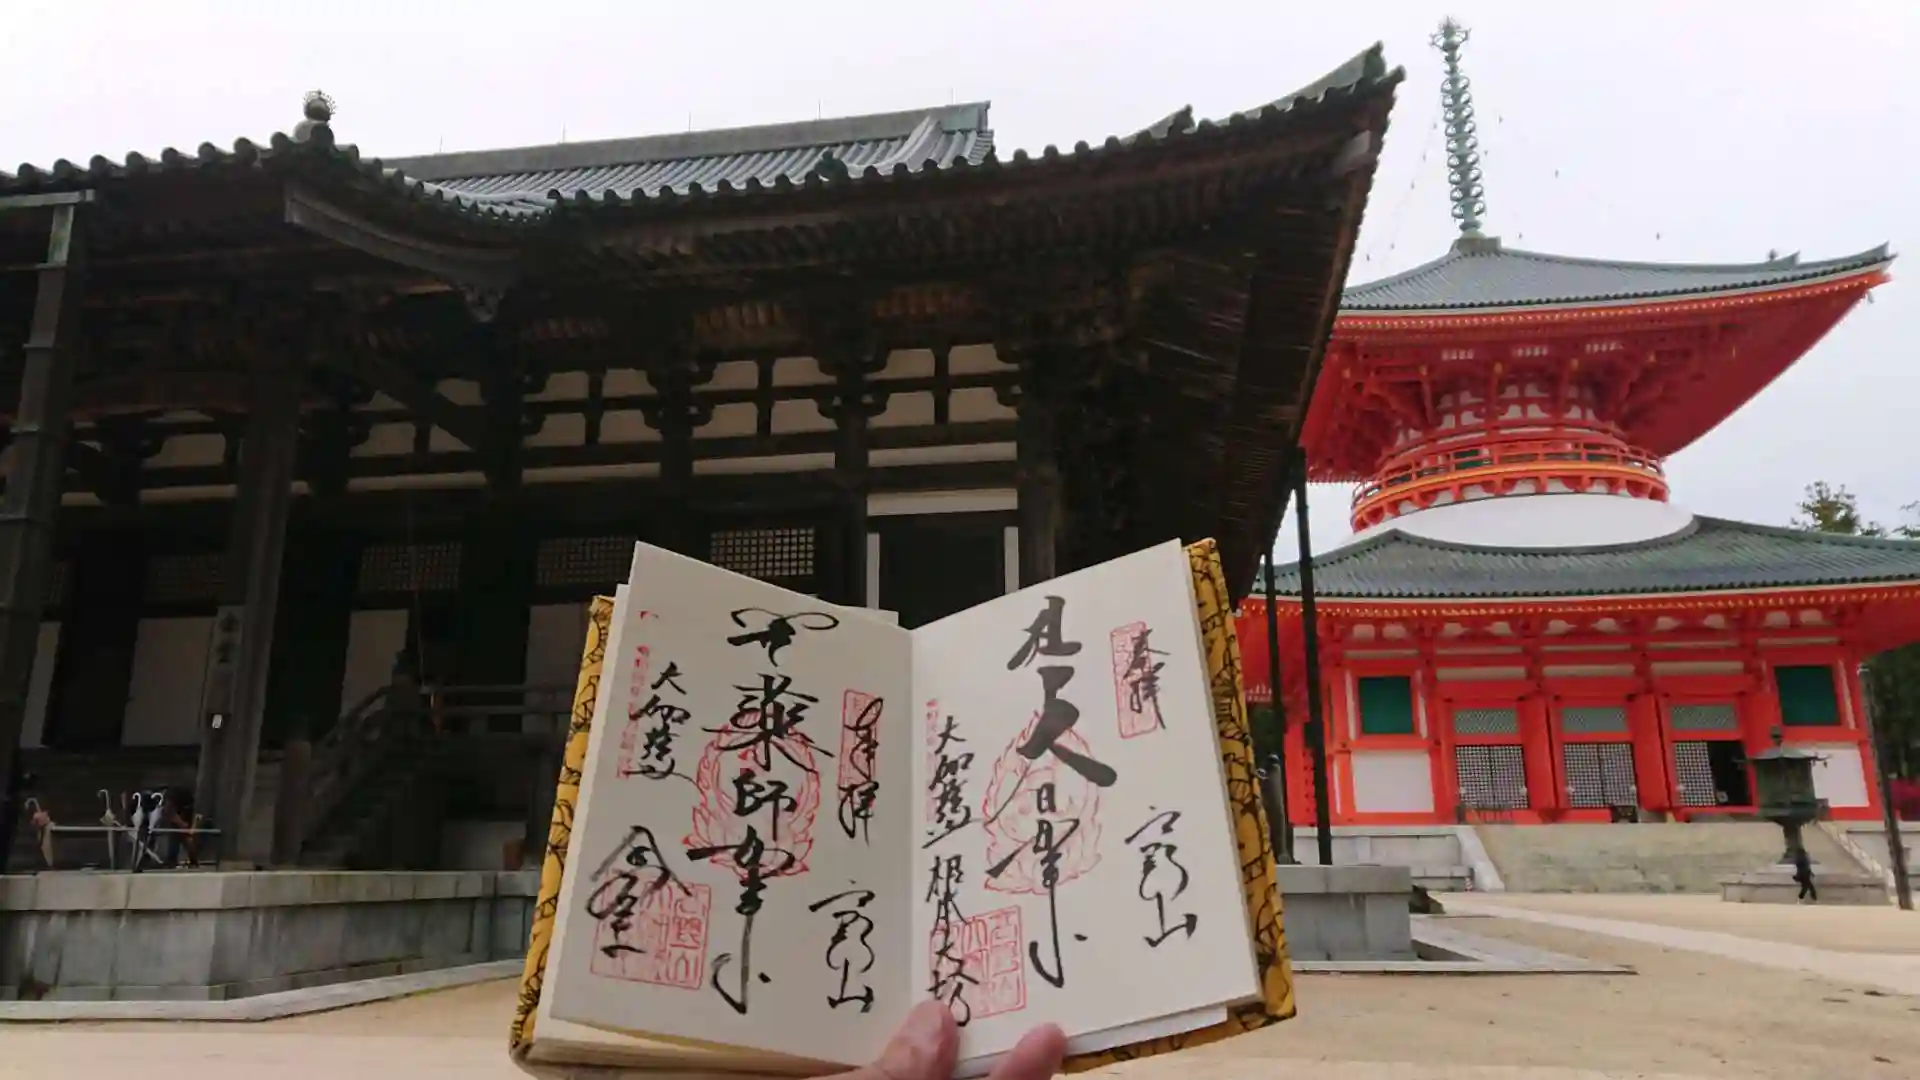 奉拝
高野山
大日如来
大伽藍 根本大塔
奉拝
高野山
薬師如来
大伽藍
金堂
金堂